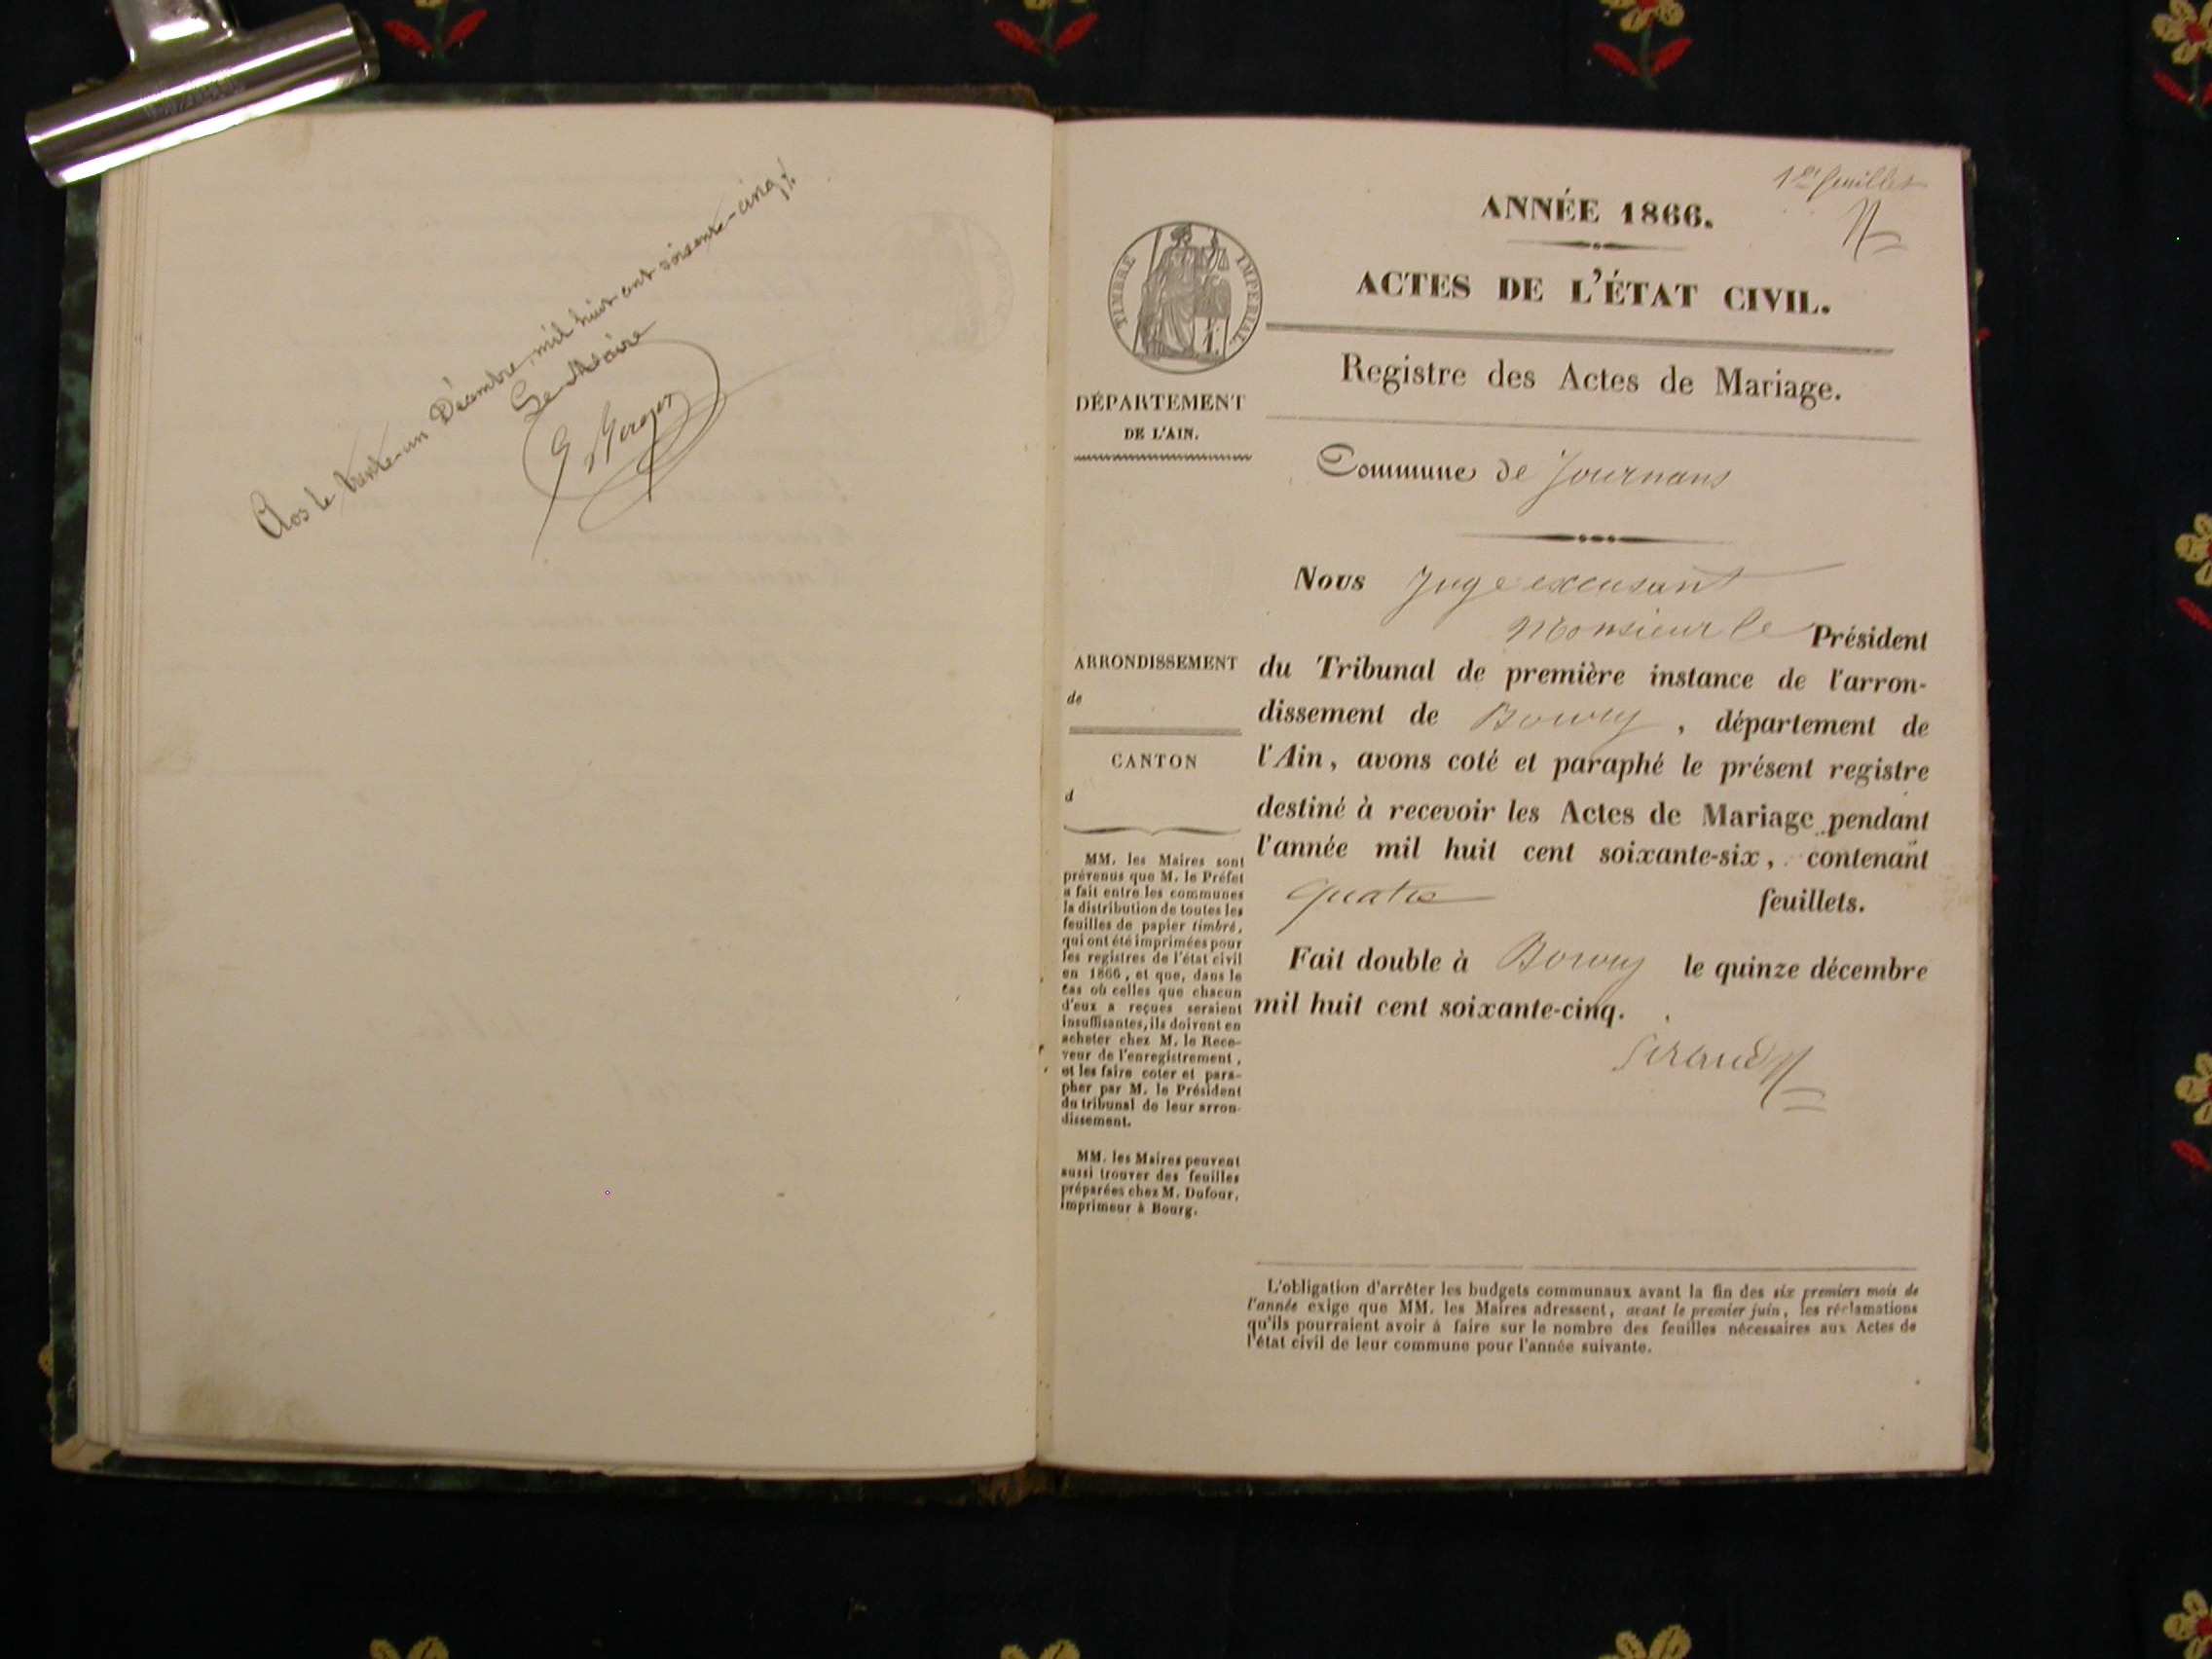 Clos le trente-un Décembre mil huit-cent soixante-cinq
Le Maire
1er feuillet
ANNÉE 1866.
ACTES DE L'ÉTAT CIVIL.
TIMBRE IMPERIAL
1.
Registre des Actes de Mariage.
DÉPARTEMENT
DE L'AIN.
Commune de Journans
Nous Juge excusant
Monsieur le Président
du Tribunal de première instance de l'arron-
dissement de Bourg, département de
l'Ain, avons coté et paraphé le présent registre
destiné à recevoir les Actes de Mariage pendant
l'année mil huit cent soixante-six, contenant
quatre feuillets.
Fait double à Bourg le quinze décembre
mil huit cent soixante-cinq.
ARRONDISSEMENT
de
CANTON
d
MM. les Maires sont
prévenus que M. le Préfet
a fait entre les communes
la distribution de toutes les
feuilles de papier timbré,
qui ont été imprimées pour
les registres de l'état civil
en 1866, et que, dans le
cas où celles que chacun
d'eux a reçues seraient
insuffisantes, ils doivent en
acheter chez M. le Rece-
veur de l'enregistrement,
et les faire coter et para-
pher par M. le Président
du tribunal de leur arron-
dissement.
MM. les Maires peuvent
aussi trouver des feuilles
préparées chez M. Dufour,
imprimeur à Bourg.
L'obligation d'arrêter les budgets communaux avant la fin des six premiers mois de
l'année exige que MM. les Maires adressent, avant le premier juin, les réclamations
qu'ils pourraient avoir à faire sur le nombre des feuilles nécessaires aux Actes de
l'état civil de leur commune pour l'année suivante.